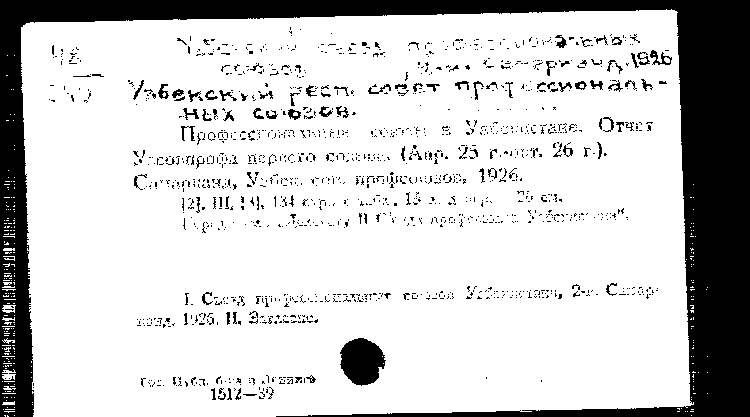 48
Узбекский съезд профессиональных
союзов, 2-й. Самарканд. 1926
Узбекский респ. совет профессиональ-
ных союзов.
Профессиональные союзы в Узбекистане. Отчет
Узсовпрофа первого созыва. (Апр. 25 г.-окт. 26 г.).
Самарканд, Узбек. сов. профсоюзов, 1926.
[2], III, [4], 134 стр. с табл. 26 см.
II Съезду профсоюзов Узбекистана".
I. Съезд профессиональных союзов Узбекистана, 2-й. Самар-
канд. 1926. II. Заглавие.
Гос. Публ. б-ка в Ленингр.
1512—39